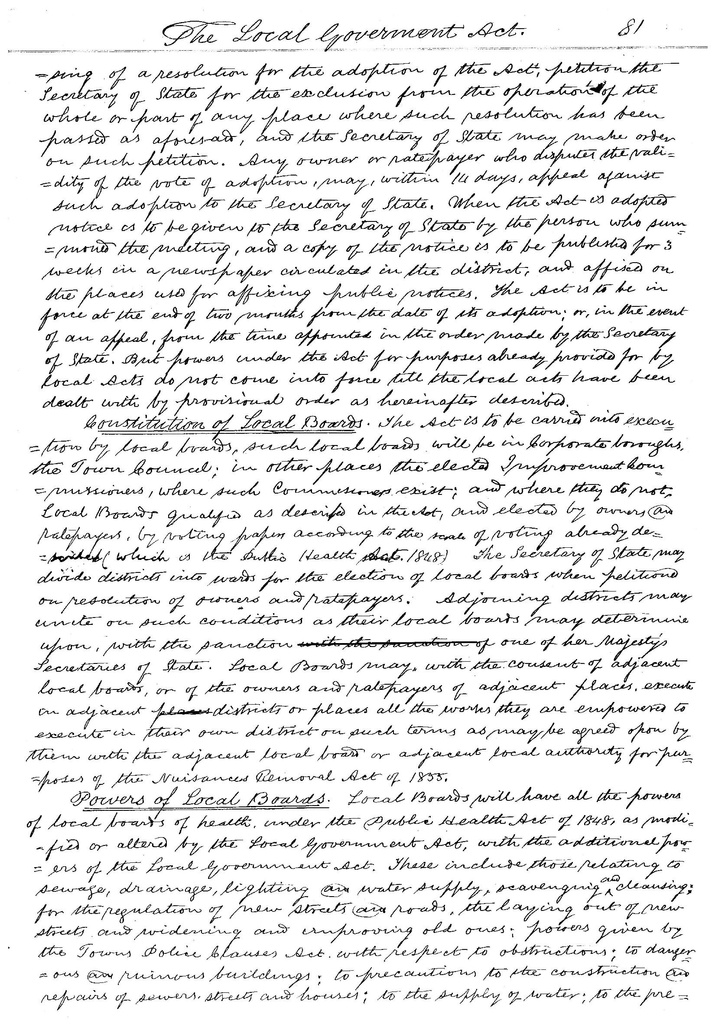 The Local Goverment Act. 81
=sing of a resolution for the adoption of the Act, petition the
Secretary of State for the exclusion from the operation of the
whole or part of any place where such resolution has been
passed as aforesaid, and the Secretary of State may make order
on such petition. Any owner or ratepayer who disputes the vali=
=dity of the vote of adoption, may, within 14 days, appeal against
such adoption to the Secretary of State. When the Act is adopted
notice is to be given to the Secretary of State by the person who sum=
=moned the meeting, and a copy of the notice is to be published for 3
weeks in a newspaper circulated in the district, and affixed on
the places used for affixing public notices. The Act is to be in
force at the end of two months from the date of its adoption; or, in the event
of an appeal, from the time appointed in the order made by the Secretary
of State. But powers under the Act for purposes already provided for by
local Acts do not come into force till the local acts have been
dealt with by provisional order as hereinafter described.
Constitution of Local Boards. The Act is to be carried into execu=
=tion by local boards, such local boards will be in Corporate boroughs,
the Town Council; in other places the elected Improvement Com=
=missioners, where such Commissioners exist; and where they do not,
Local Boards qualified as described in the Act, and elected by owners and
ratepayers, by voting papers according to the scale of voting already de=
(which is the Public Health Act. 1848) The Secretary of State may
divide districts into wards for the election of local boards when petitioned
on resolution of owners and ratepayers. Adjoining districts may
unite on such conditions as their local boards may determine
upon, with the sanction with the sanction of one of her Majesty's
Secretaries of State. Local Boards may, with the consent of adjacent
local boards, or of the owners and ratepayers of adjacent places, execute
in adjacent places districts or places all the works they are empowered to
execute in their own district on such terms as may be agreed upon by
them with the adjacent local board or adjacent local authority for pur=
=poses of the Nuisances Removal Act of 1855.
Powers of Local Boards. Local Boards will have all the powers
of local boards of health under the Public Health Act of 1848, as modi=
=fied or altered by the Local Government Act, with the additional pow=
=ers of the Local Government Act. These include those relating to
sewage, drainage, lighting and water supply, scavenging and cleansing;
for the regulation of new streets and roads, the laying out of new
streets and widening and improving old ones; powers given by
the Towns Police Clauses Act with respect to obstructions; to danger=
=ous and ruinous buildings; to precautions to the construction and
repairs of sewers, streets and houses; to the supply of water; to the pre=